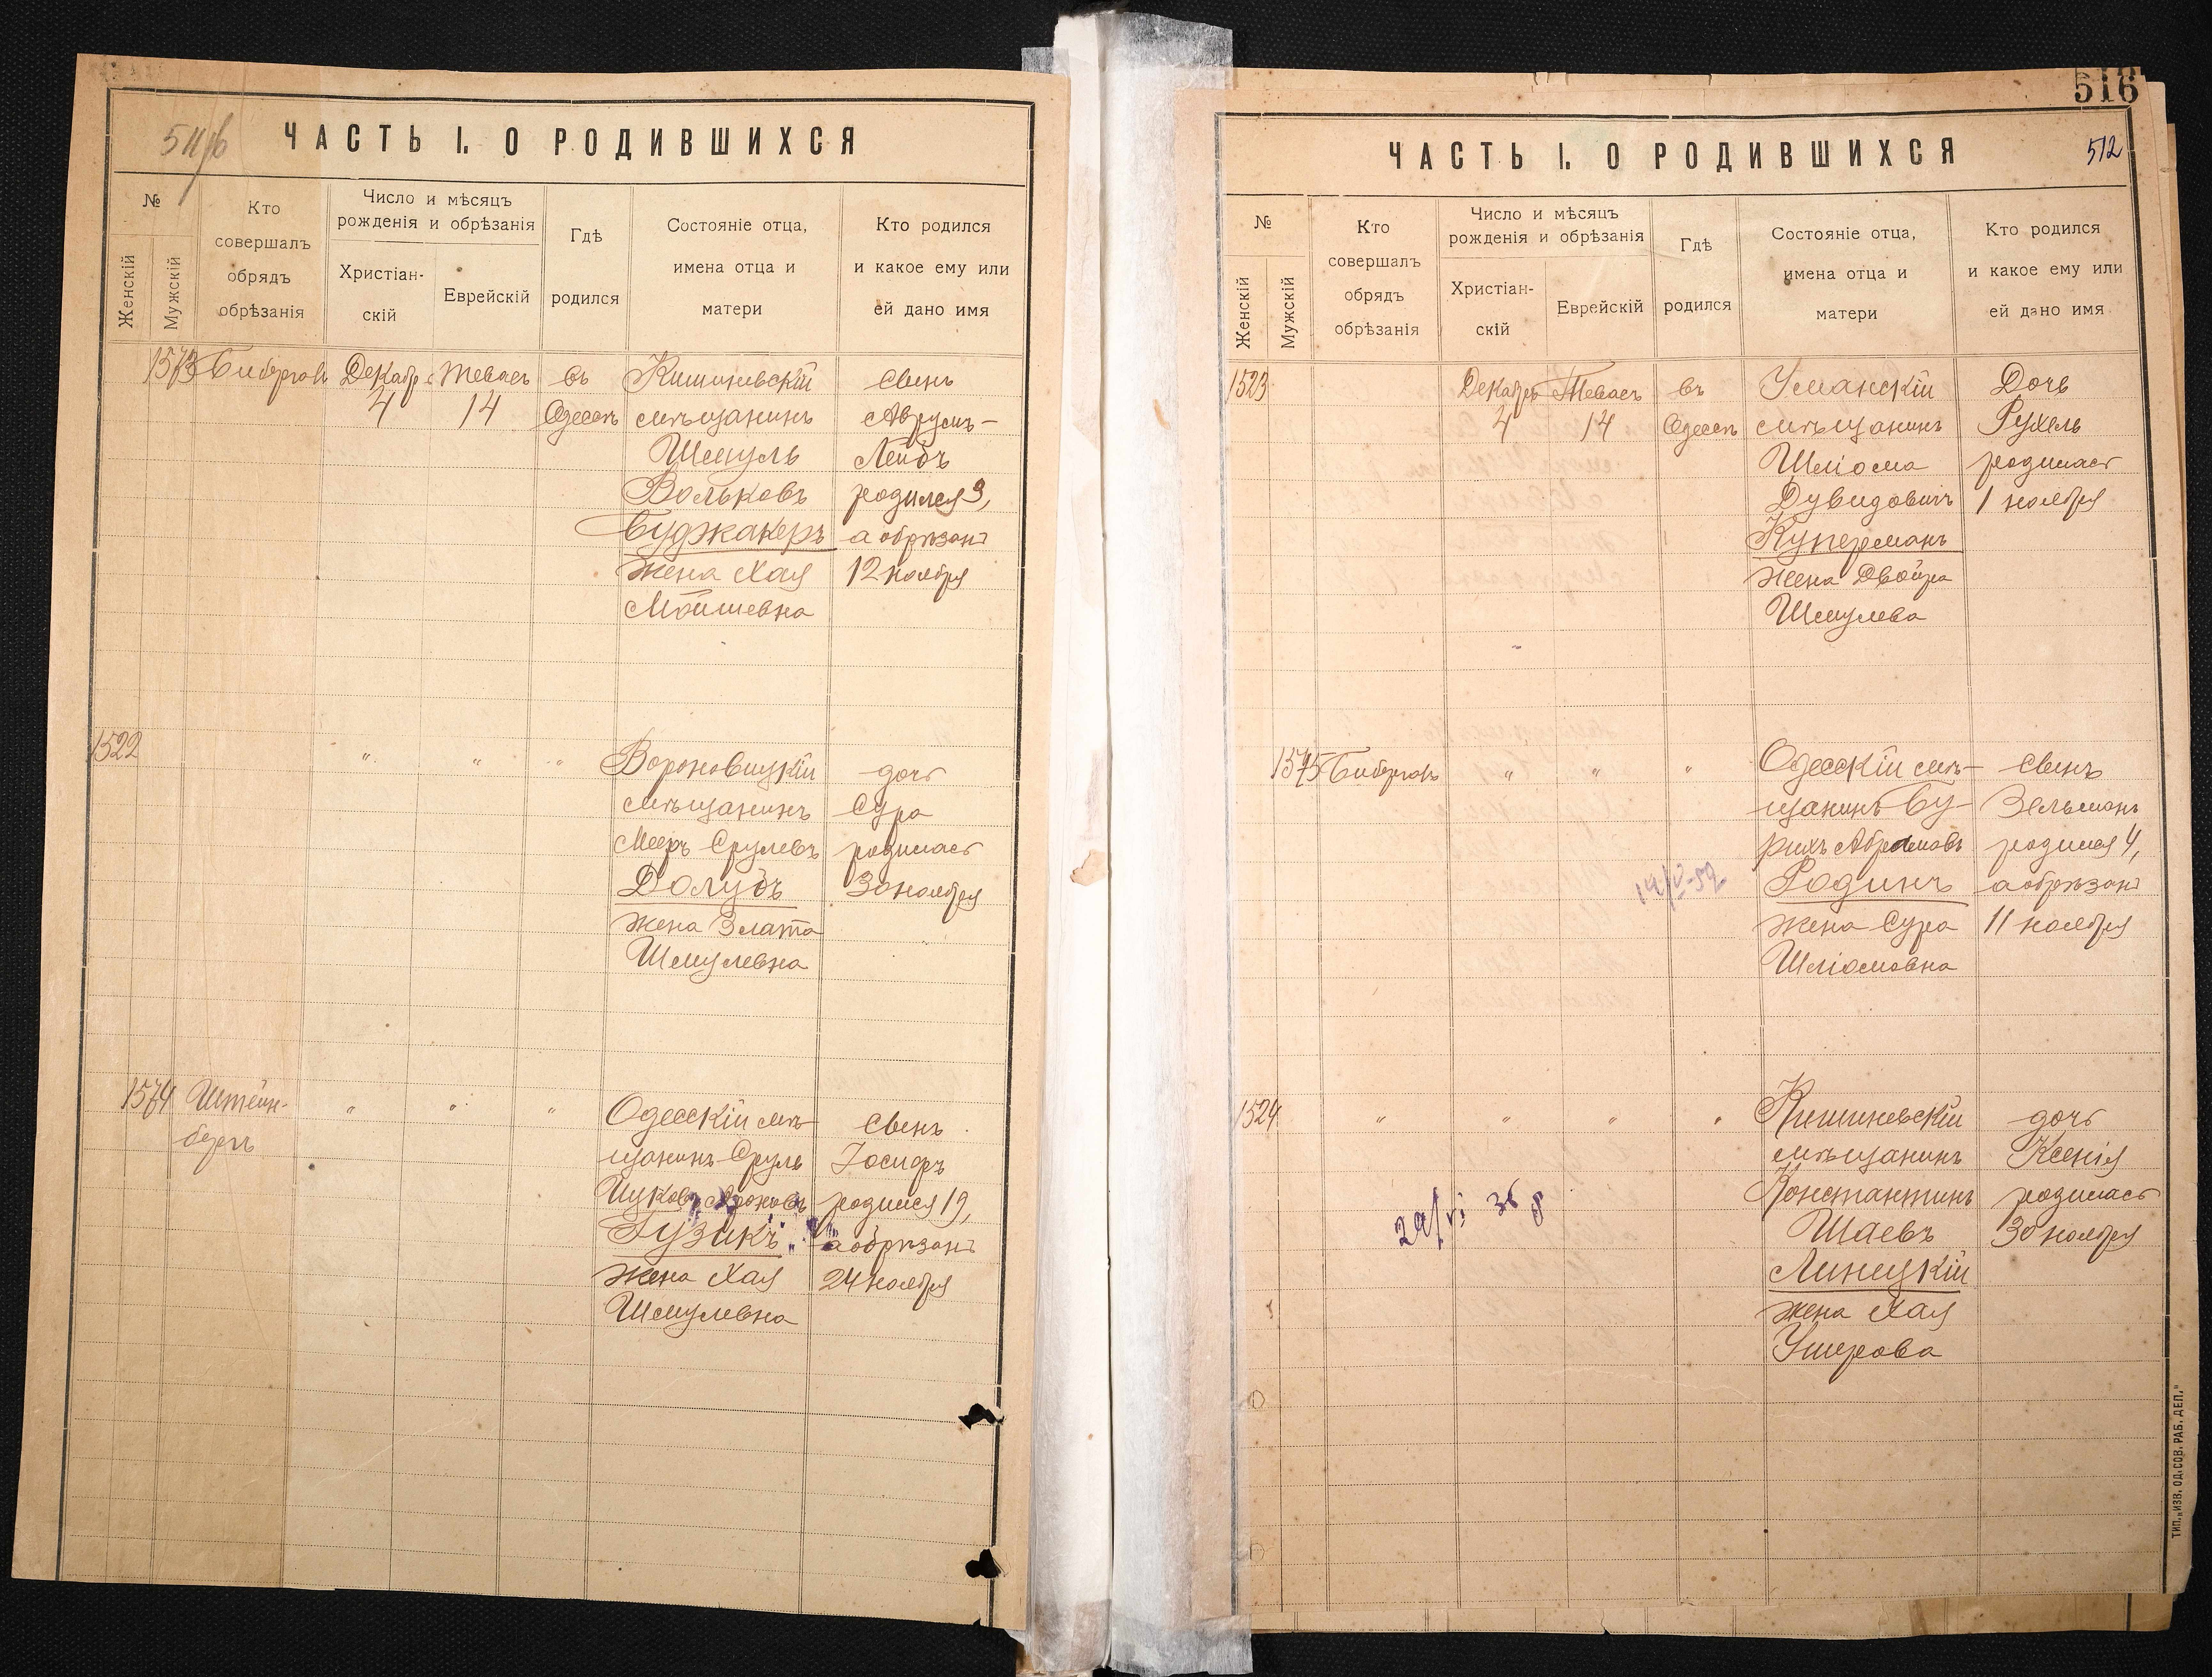 ЧАСТЬ I. О РОДИВШИХСЯ
№
Женскій
Мужскій
Кто
совершалъ
обрядъ
обрѣзанія
Число и мѣсяцъ
рожденія и обрѣзанія
Христіан-
скій
Еврейскій
Гдѣ
родился
Состояніе отца,
имена отца и
матери
Кто родился
и какое ему или
ей дано имя
1573
Декабр
4
Теваес
14
въ
Одессѣ
Кишиневскій
мѣщанинъ
Шмуль
Вольковъ
Буджакеръ
жена Хая
Мойшевна
Сынъ
Аврумъ-
Лейбъ
родился 3,
а обрѣзанъ
12 ноября
1522
" " "
Вороновицкій
мѣщанинъ
Мееръ Срулевъ
Долубъ
жена Злата
Шмулевна
дочь
Сура
родилась
30 ноября
1574
Штейн-
бергъ
" " "
Одесскій мѣ-
щанинъ Сруль
Гузикъ
жена Хая
Шмулевна
Сынъ
Іосифъ
родился 19,
а обрѣзанъ
24 ноября
516
ЧАСТЬ I. О РОДИВШИХСЯ
512
№
Женскій
Мужскій
Кто
совершалъ
обрядъ
обрѣзанія
Число и мѣсяцъ
рожденія и обрѣзанія
Христіан-
скій
Еврейскій
Гдѣ
родился
Состояніе отца,
имена отца и
матери
Кто родился
и какое ему или
ей дано имя
1523
Декабрь
4
Теваес
14
въ
Одессѣ
Уманскій
мѣщанинъ
Шліома
Дувидовичъ
Куперманъ
жена Двойра
Шмулева
Дочь
Рухель
родилась
1 ноября
1575
" " "
Одесскій мѣ-
щанинъ Бу-
рихъ Абрамовъ
Родинъ
жена Сура
Шліомовна
Сынъ
Зельманъ
родился 4,
а обрѣзанъ
11 ноября
1524
" " " "
Кишиневскій
мѣщанинъ
Константинъ
Шаевъ
Линецкій
жена Хая
Ушерова
дочь
Ксенія
родилась
30 ноября
ТИП. „ИЗВ. ОД. СОВ. РАБ. ДЕП."